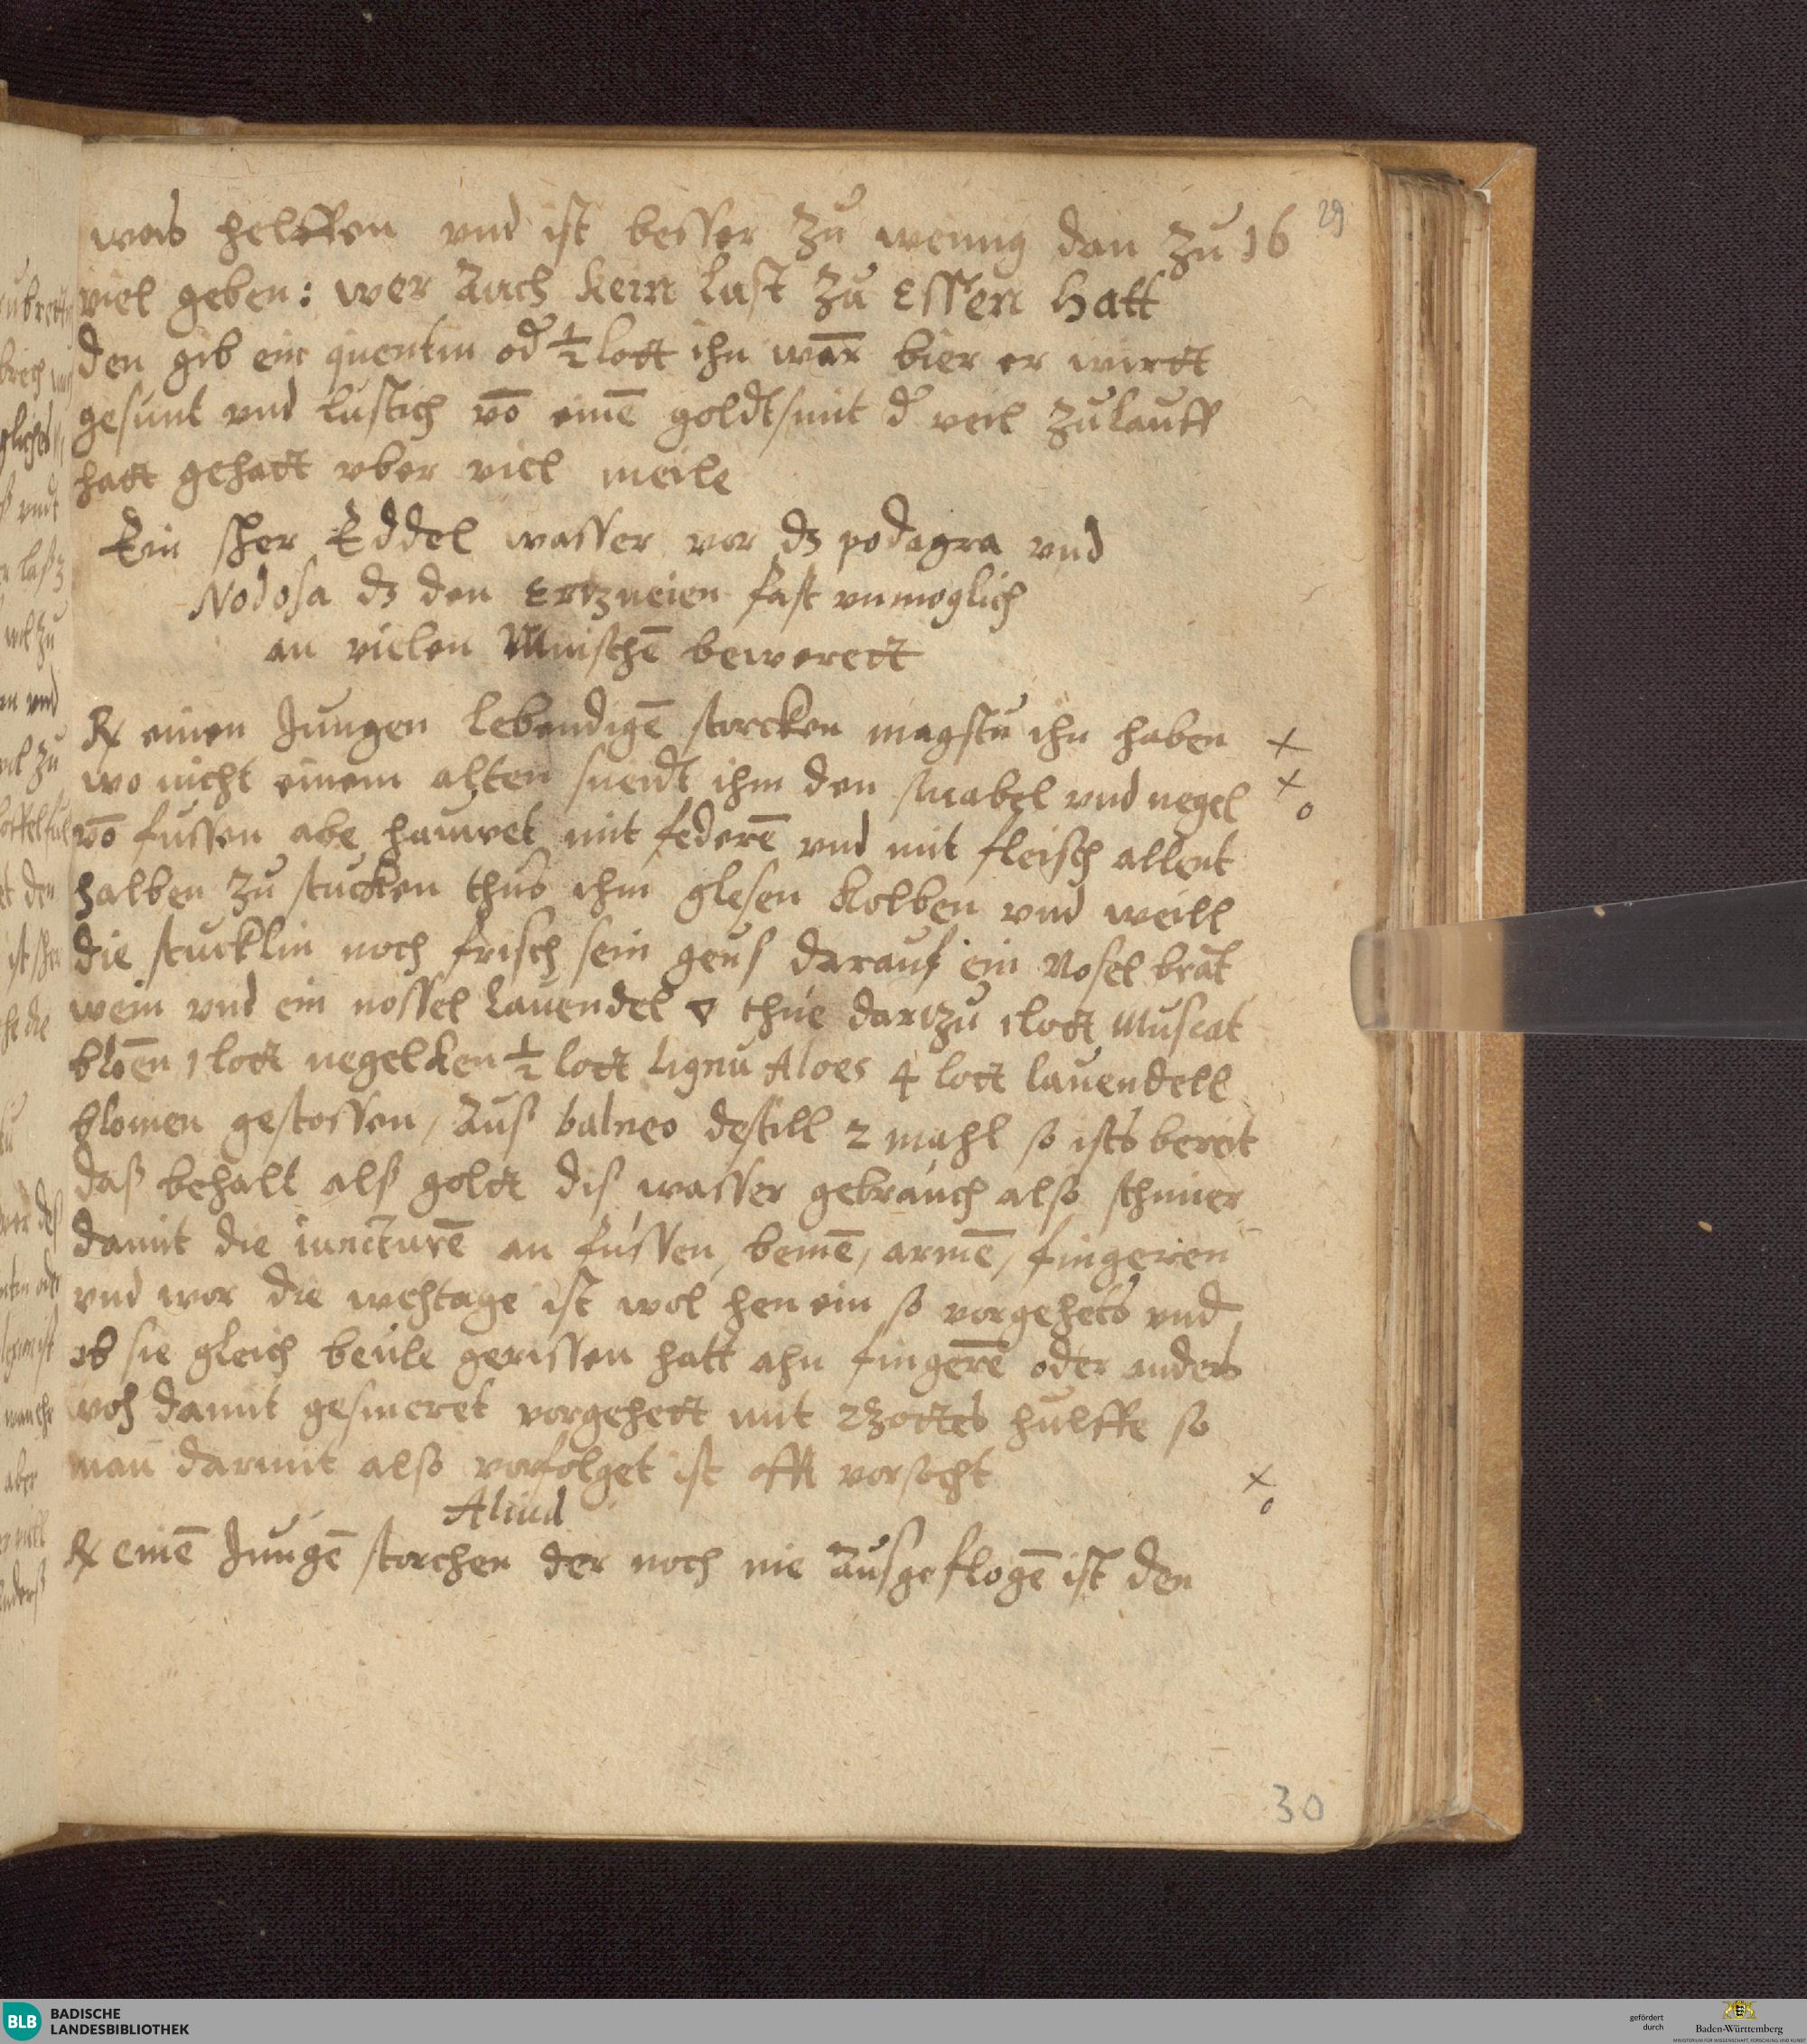 was helffen vnd ist besser zu wennig dan zu 16 29
viel geben: wer Auch kein lust zu Essen hatt
den gib ein quentin od̃ ½ lott ihn warm̃ bier er wirtt
gesunt vnd lustich vō einē goldtsmit d̃ veil zulauff
hatt gehatt vber viel meile
Ein sher Eddel wasser vor dz podagra vnd
Nodosa dz den Ertzneien fast vnmoglich
an vielen Mnischē bewerett
℞ einen Jungen lebendigē storcken magstu ihn haben
wo nicht einem alten sneidt ihm den snabel vnd negel
vō fussen abe hauwet mit federē vnd mit fleisch allent
halben zu stucken thus ihm glesen kolben vnd weill
die stucklin noch frisch sein geus darauf ein Nosel brāt
wein vnd ein nossel Lauendel ▽ thue dartzu 1 lott Muscat
bloēn 1 lott negelken ½ lott Lignū Aloes 4 lott lauendell
blomen gestossen / Aus balneo destill 2 mahl so ists bereit
daß behalt alß goldt diß wasser gebrauch also schmier
damit die iuncturē an fussen, beinē / armē / fingeren
vnd wor die wehtage ist wol hen ein so vorgehets vnd
ob sie gleich beule gerissen hatt ahn fingerē oder anders
woh damit gesmeret vorgehett mit Gottes hulffe so
man darmit also vorfolget ist offt vorsocht
Aliud
℞ einē Jungē storchen der noch nie Ausgeflogē ist den
30
BLB BADISCHE
LANDESBIBLIOTHEK
gefördert
durch
Baden-Württemberg
MINISTERIUM FÜR WISSENSCHAFT, FORSCHUNG UND KUNST